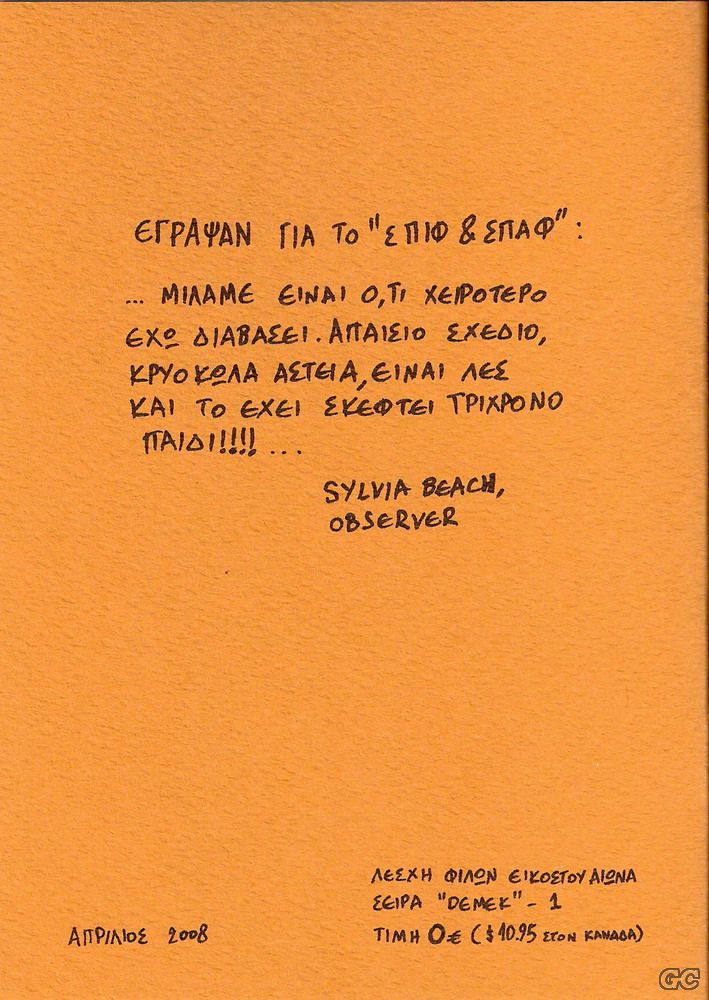 ΕΓΡΑΨΑΝ ΓΙΑ ΤΟ "ΣΠΙΦ & ΣΠΑΦ":
... ΜΙΛΑΜΕ ΕΙΝΑΙ Ο,ΤΙ ΧΕΙΡΟΤΕΡΟ
ΕΧΩ ΔΙΑΒΑΣΕΙ. ΑΠΑΙΣΙΟ ΣΧΕΔΙΟ,
ΚΡΥΟΚΩΛΑ ΑΣΤΕΙΑ, ΕΙΝΑΙ ΛΕΣ
ΚΑΙ ΤΟ ΕΧΕΙ ΣΚΕΦΤΕΙ ΤΡΙΧΡΟΝΟ
ΠΑΙΔΙ!!!! ...
SYLVIA BEACH,
OBSERVER
ΛΕΣΧΗ ΦΙΛΩΝ ΕΙΚΟΣΤΟΥ ΑΙΩΝΑ
ΣΕΙΡΑ "DEMEK" - 1
ΤΙΜΗ 0€ ($10.95 ΣΤΟΝ ΚΑΝΑΔΑ)
ΑΠΡΙΛΙΟΣ 2008
GC